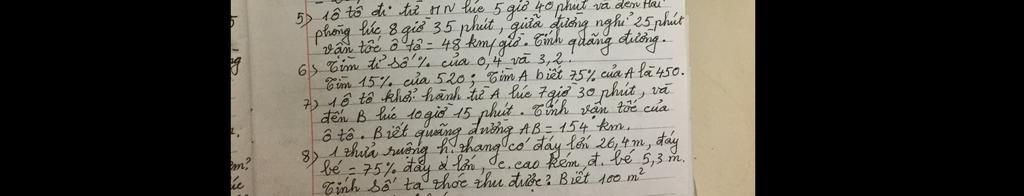 5) 1 ô tô đi từ HN lúc 5 giờ 40 phút và đến Hải
phòng lúc 8 giờ 35 phút, giữa đường nghỉ 25 phút
vận tốc ô tô = 48 km/giờ. Tính quãng đường.
6) Tìm tỉ số % của 0,4 và 3,2.
Tìm 15% của 520; Tìm A biết 75% của A là 450.
7) 1 ô tô khởi hành từ A lúc 7 giờ 30 phút, và
đến B lúc 10 giờ 15 phút. Tính vận tốc của
ô tô. Biết quãng đường AB = 154 km.
8) 1 thửa ruộng h. thang có đáy lớn 26,4 m, đáy
bé = 75% đáy lớn, c. cao kém đ. bé 5,3 m.
Tính số tạ thóc thu được? Biết 100 m²